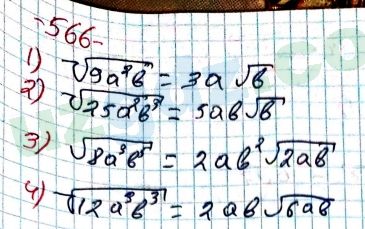 -566-
1) √9a²b = 3a√b
2) √25a²b³ = 5ab√b
3) √8a³b⁵ = 2ab²√2ab
4) √12a³b³ = 2ab√6ab